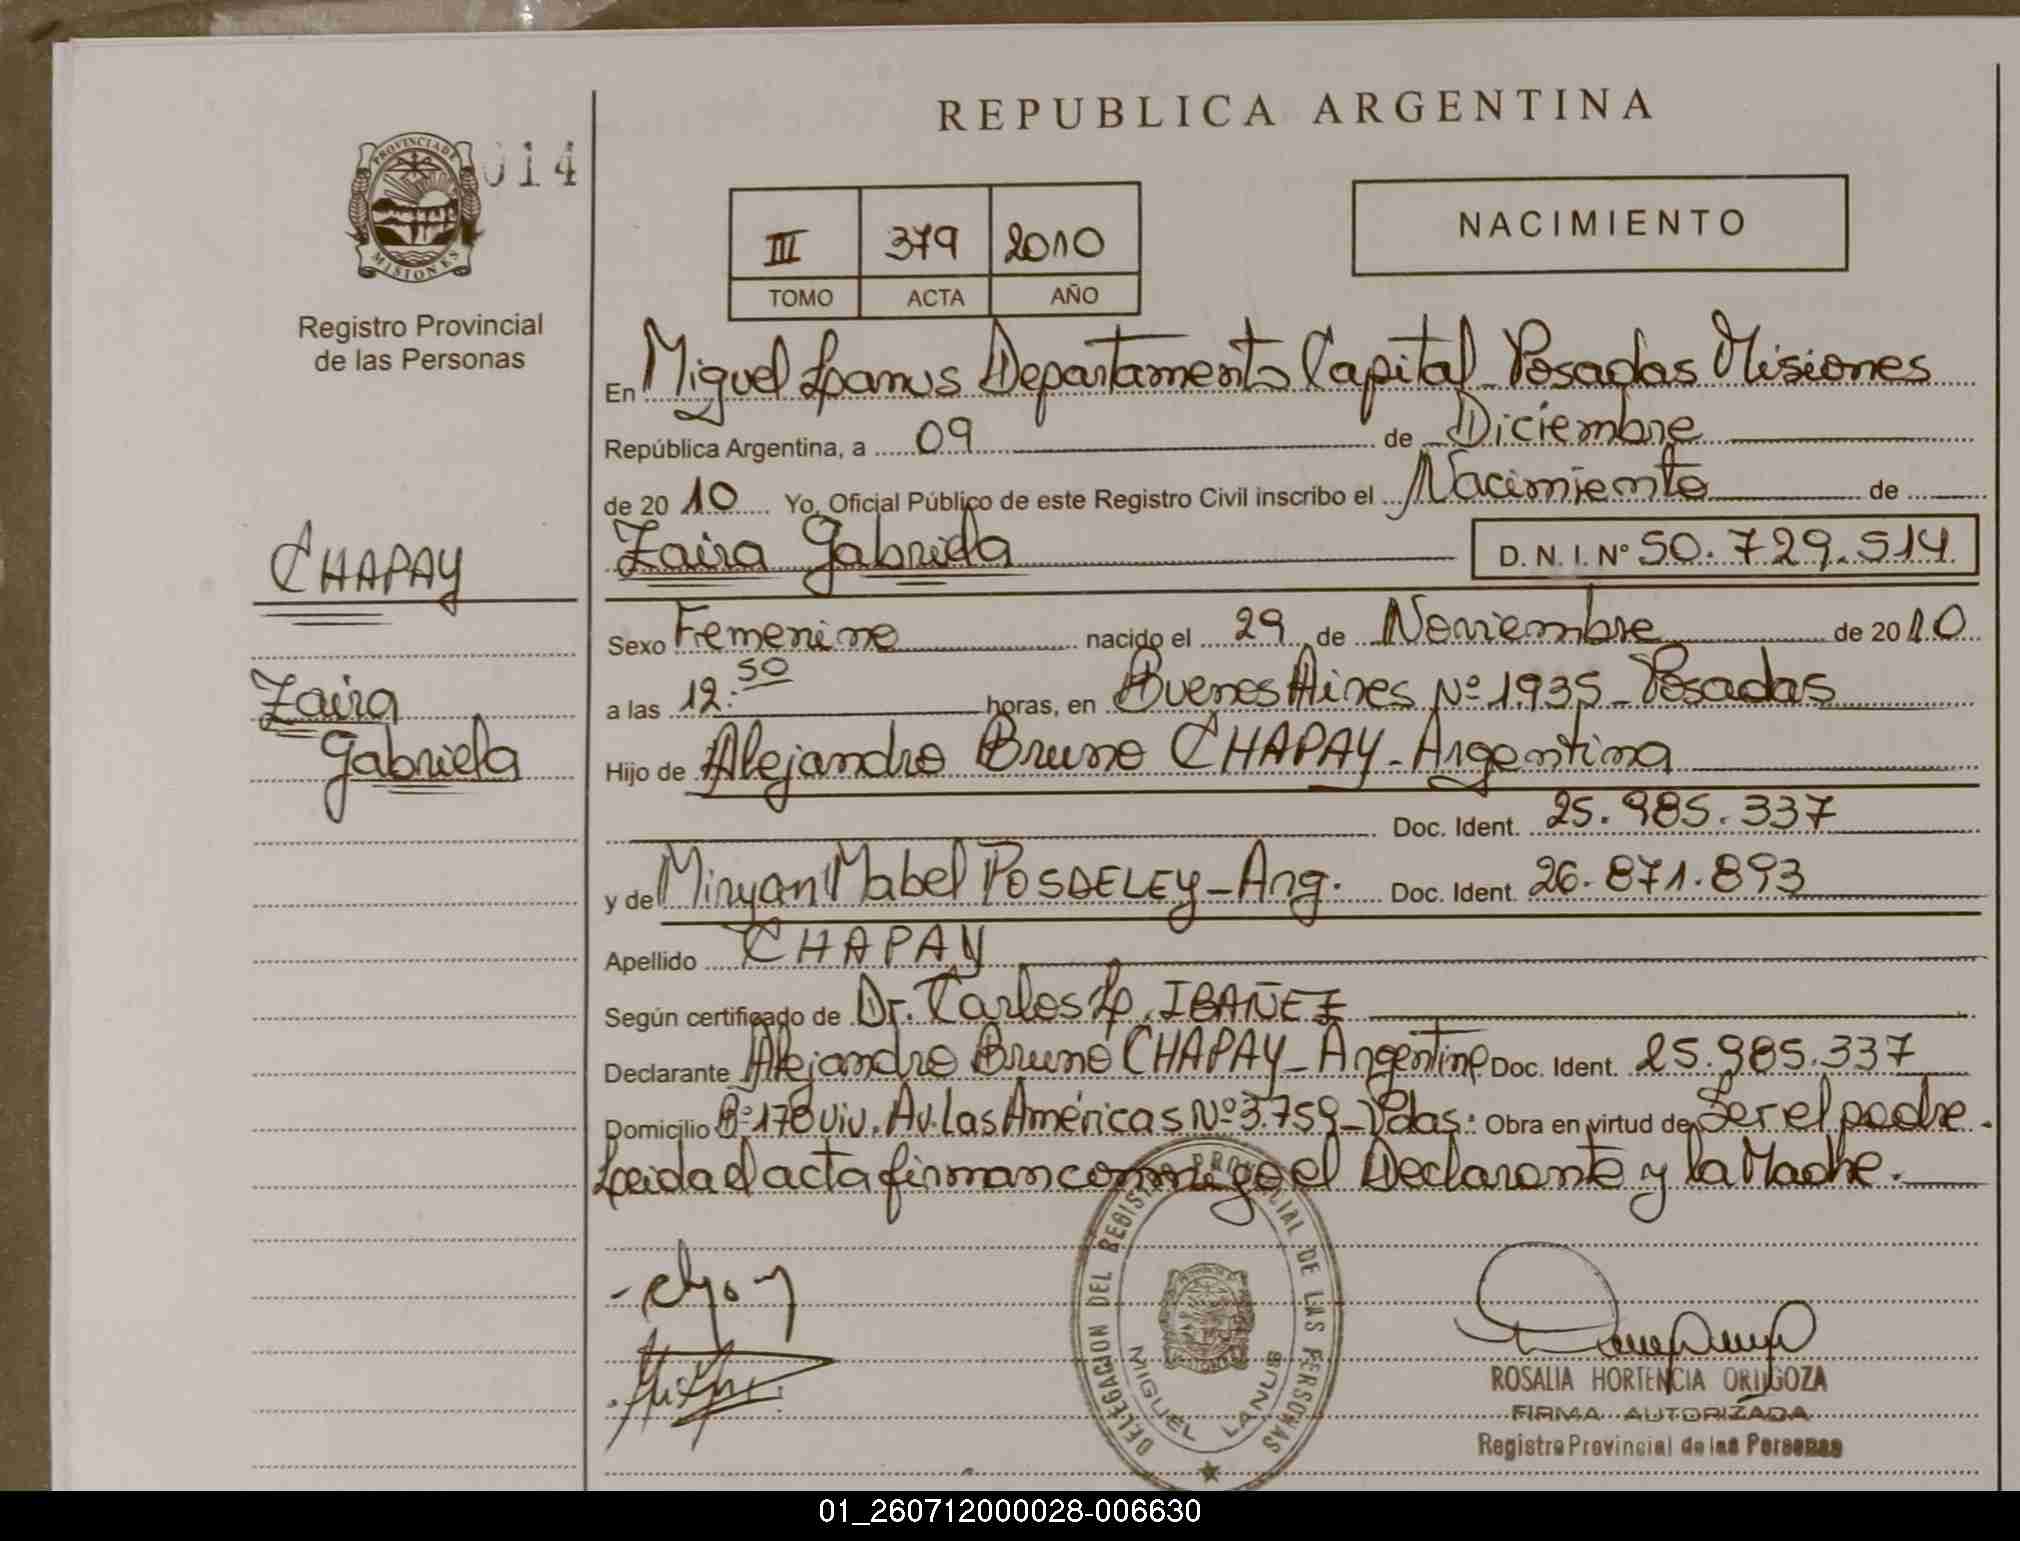 REPUBLICA ARGENTINA
PROVINCIA DE
MISIONES
014
Registro Provincial
de las Personas
III 379 2010
TOMO ACTA AÑO
NACIMIENTO
En Miguel Lanus Departamento Capital Posadas Misiones
República Argentina, a 09 de Diciembre
de 2010 Yo, Oficial Público de este Registro Civil inscribo el Nacimiento de
CHAPAY
Zaira Gabriela D. N. I. Nº 50.729.514
Sexo Femenino nacido el 29 de Noviembre de 2010
Zaira
Gabriela
a las 12:50 horas, en Buenos Aires Nº 1935 - Posadas
Hijo de Alejandro Bruno CHAPAY - Argentina
Doc. Ident. 25.985.337
y de Miryan Mabel POSDELEY - Arg. Doc. Ident. 26.871.893
Apellido CHAPAY
Según certificado de Dr. Carlos L. IBAÑEZ
Declarante Alejandro Bruno CHAPAY - Argentino Doc. Ident. 25.985.337
Domicilio Bº 178 viv. Av. Las Américas Nº 3.759 - Pdas. Obra en virtud de Ser el padre.
Leida el acta firman conmigo el Declarante y la Madre.
DELEGACION DEL REGISTRO PROVINCIAL DE LAS PERSONAS
MIGUEL LANUS
ROSALIA HORTENCIA ORTIGOZA
FIRMA AUTORIZADA
Registro Provincial de las Personas
01_260712000028-006630